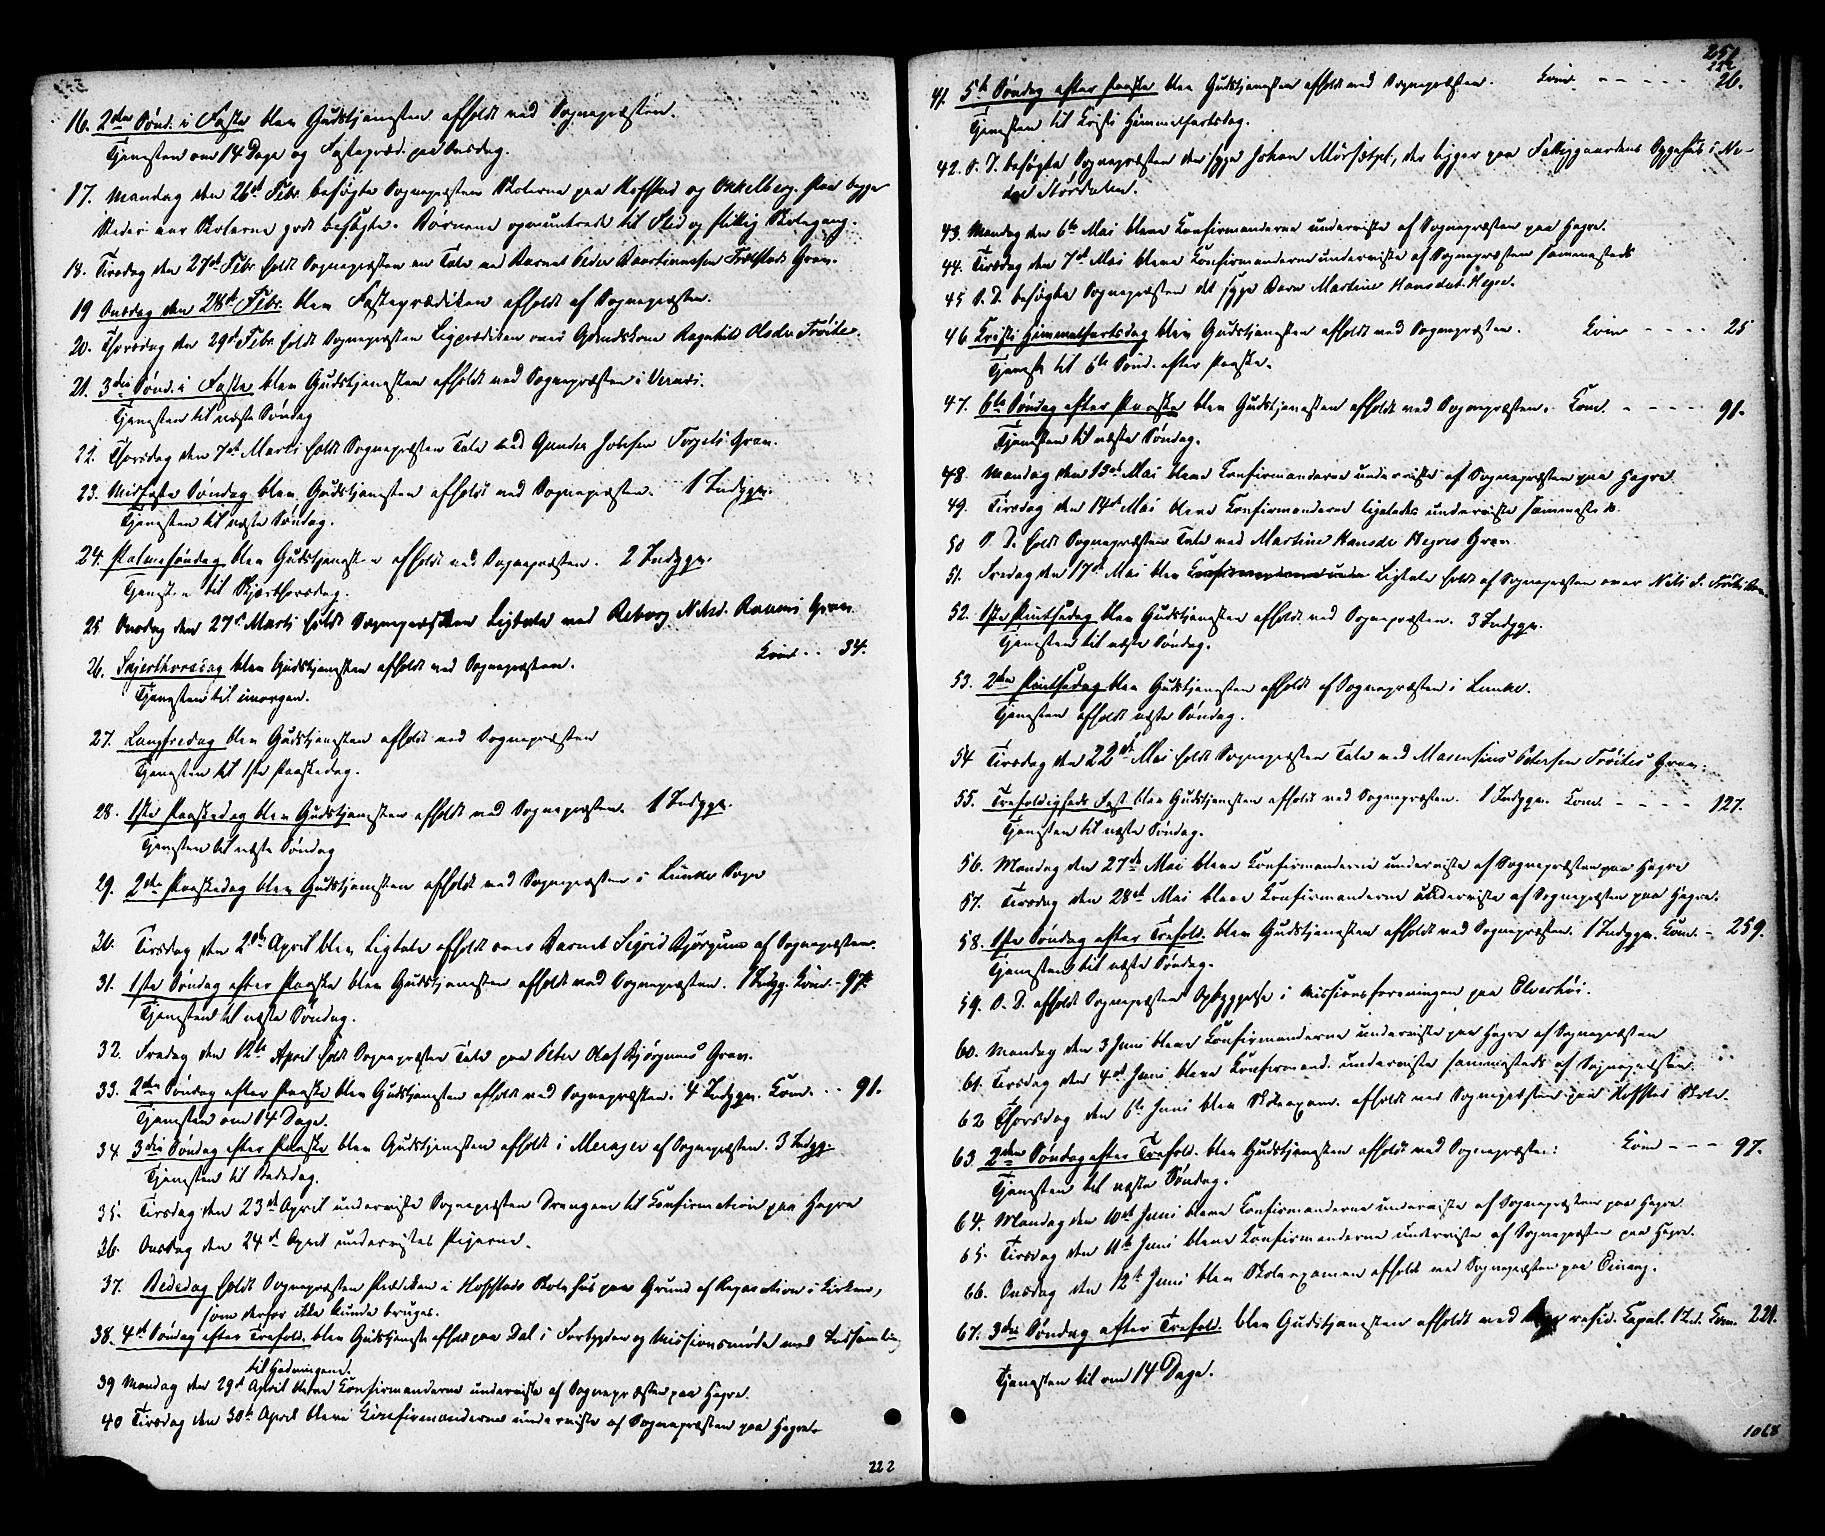 16. 2den Sønd. i Faste blev Gudstjenesten afholdt ved Sognepræsten.
Tjenesten om 14 Dage og Fastepræd. paa Onsdag.
17. Mandag den 26de Febr. besøgte Sognepræsten Skolerne paa Hofstad og Okkelberg. Paa begge
Steder var Skolerne godt besøgte. Børnene opmuntrede til Flid og flittig Skolegang.
18. Tirsdag den 27de Febr. holdt Sognepræsten en Tale ved Barnet Peder Grav.
19 Onsdag den 28de Febr. blev Fasteprædiken afholdt af Sognepræsten.
20. Thorsdag den 29de Febr. holdt Sognepræsten Ligprædiken over Ragnhild Olsdr Frøite.
21. 3die Sønd. i Faste blev Gudstjenesten afholdt ved Sognepræsten i
Tjenesten til næste Søndag
22. Thorsdag den 7de Marts holdt Sognepræsten Tale ved Grav.
23. Midfaste Søndag blev Gudstjenesten afholdt ved Sognepræsten. 1 Indggn.
Tjenesten til næste Søndag.
24. Palmesøndag blev Gudstjenesten afholdt ved Sognepræsten. 2 Indggn.
Tjenesten til Skjærthorsdag.
25 Onsdag den 27de Marts holdt Sognepræsten Ligtale ved Grav.
26. Skjerthorsdag blev Gudstjenesten afholdt ved Sognepræsten. Kom. .. 34.
Tjenesten til imorgen.
27. Langfredag blev Gudstjenesten afholdt ved Sognepræsten
Tjenesten til 1ste Paaskedag.
28. 1ste Paaskedag blev Gudstjenesten afholdt ved Sognepræsten. 1 Indggn.
Tjenesten til næste Søndag
29. 2den Paaskedag blev Gudstjenesten afholdt ved Sognepræsten i Lunke Sogn
30. Tirsdag den April blev Ligtale afholdt over Barnet Sigrid af Sognepræsten.
31. 1ste Søndag efter Paaske blev Gudstjenesten afholdt ved Sognepræsten. 1 Indgg. Kom. - 97.
Tjenesten til næste Søndag.
32. Fredag den 12te April holdt Sognepræsten Tale paa Peter Olaf Grav.
33. 2den Søndag efter Paaske blev Gudstjenesten afholdt ved Sognepræsten. 4 Indggn. Kom. .. 91.
Tjenesten om 14 Dage.
34 3die Søndag efter Paaske blev Gudstjenesten afholdt i Merager af Sognepræsten. 3 Indgg.
Tjenesten til Bededag.
35. Tirsdag den 23de April underviste Sognepræsten Drengene til Confirmation paa Hegre
36. Onsdag den 24de April undervistes Pigerne.
37. Bededag holdt Sognepræsten Prædiken i Hofstads Skolehus paa Grund af Reparation i Kirken,
som derfor ikke kunde bruges.
38. 4de Søndag efter Trefold. blev Gudstjeneste afholdt paa Dal i Forbygden og Missionsmøde med
til Hedningene.
39 Mandag den 29de April bleve Confirmanderne underviste af Sognepræsten paa Hegre.
40 Tirsdag den 30te April bleve Confirmanderne underviste af Sognepræsten paa Hegre.
222
251
222
41. 5te Søndag efter Paaske blev Gudstjenesten afholdt ved Sognepræsten. Kom. - - - - - 26.
Tjenesten til Kristi Himmelfartsdag.
42. S. D. besøgte Sognepræsten den syge Johan der ligger paa Fattiggaardens Sygehus i Ne-
dre Størdalen.
43. Mandag den 6te Mai bleve Confirmanderne underviste af Sognepræsten paa Hegre.
44. Tirsdag den 7de Mai bleve Confirmanderne underviste af Sognepræsten sammesteds
45 S. D. besøgte Sognepræsten det syge Barn Martine Hansdat. Hegre.
46 Kristi Himmelfartsdag blev Gudstjenesten afholdt ved Sognepræsten. Kom - - - - 25
Tjeneste til 6te Sønd. efter Paaske.
47. 6te Søndag efter Paaske blev Gudstjenesten afholdt ved Sognepræsten. Kom. - - - - - 91.
Tjenesten til næste Søndag.
48. Mandag den 13de Mai bleve Confirmanderne underviste af Sognepræsten paa Hegre
49. Tirsdag den 14de Mai bleve Confirmanderne ligeledes underviste sammesteds.
50 S. D. holdt Sognepræsten Tale ved Martine Hansdr Hegres Grav
51. Fredag den 17de Mai blev Ligtale holdt af Sognepræsten over
52. 1ste Pintsedag blev Gudstjenesten afholdt ved Sognepræsten. 3 Indggn.
Tjenesten til næste Søndag.
53. 2den Pintsedag blev Gudstjenesten afholdt af Sognepræsten i Lunke.
Tjenesten afholdt næste Søndag.
54 Tirsdag den 22de Mai holdt Sognepræsten Tale ved Marensius Petersen Frøites Grav.
55. Trefoldigheds Fest blev Gudstjenesten afholdt ved Sognepræsten. 1 Indggn. Kom. - - - - 127.
Tjenesten til næste Søndag.
56. Mandag den 27de Mai bleve Confirmanderne underviste af Sognepræsten paa Hegre
57. Tirsdag den 28de Mai bleve Confirmanderne underviste af Sognepræsten paa Hegre.
58. 1ste Søndag efter Trefold. blev Gudstjenesten afholdt ved Sognepræsten. 1 Indggn. Kom. - 259.
Tjenesten til næste Søndag.
59. S. D. afholdt Sognepræsten Opbyggelse i Missionsforeningen paa Elverhøi.
60. Mandag den 3 Juni bleve Confirmanderne underviste paa Hegre af Sognepræsten
61. Tirsdag den 4de Juni bleve Confirmand. underviste sammesteds af Sognepræsten.
62 Thorsdag den 6te Juni blev Skoleexam. afholdt ved Sognepræsten paa Hofstad Skole.
63 2den Søndag efter Trefold. blev Gudstjenesten afholdt ved Sognepræsten: Kom - - - 97.
Tjenesten til næste Søndag.
64. Mandag den 10de Juni bleve Confirmanderne underviste af Sognepræsten paa Hegre
65. Tirsdag den 11te Juni bleve Confirmanderne underviste af Sognepræsten paa Hegre.
66. Onsdag den 12te Juni blev Skoleexamen afholdt ved Sognepræsten paa Einang.
67. 3die Søndag efter Trefold. blev Gudstjenesten afholdt ved resid. Capel. 1 Ind. Kom. 221.
Tjenesten til om 14 Dage.
1068